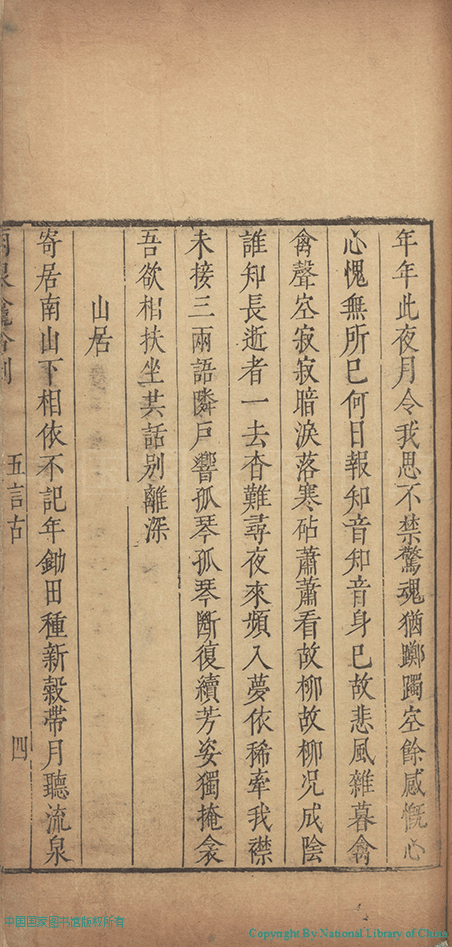 年年此夜月令我思不禁驚魂猶躑躅空餘感慨心
心愧無所巳何日報知音知音身已故悲風雜暮禽
禽聲空寂寂暗淚落寒砧蕭蕭看故柳故柳况成陰
誰知長逝者一去杳難尋夜來頻入夢依稀牽我襟
未接三兩語隣戶響孤琴孤琴斷復續芳姿獨掩衾
吾欲相扶坐共話別離深
山居
寄居南山下相依不記年鋤田種新穀帶月聽流泉
五言古
四
中国国家图书馆版权所有
Copyright By National Library of China